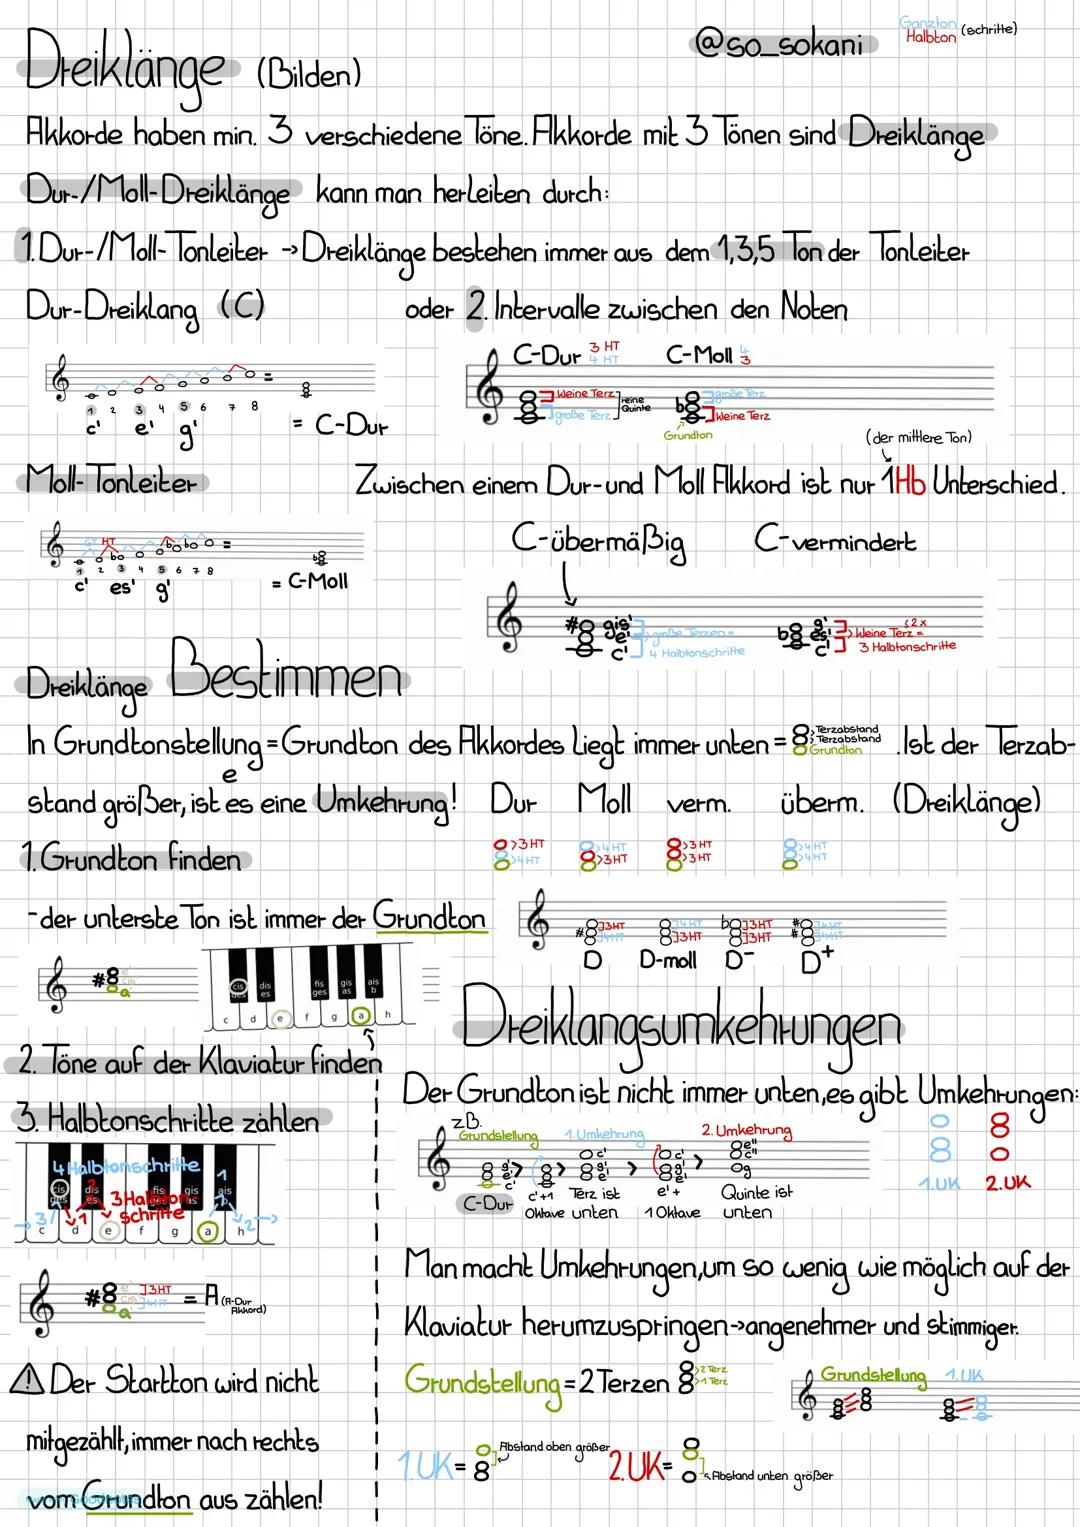 Dreiklänge (Bilden)
@so_sokani
Ganzton
Halbton (schritte)
Akkorde haben min. 3 verschiedene Töne. Akkorde mit 3 Tönen sind Dreiklänge
Dur-/Moll-Dreiklänge kann man herleiten durch:
1. Dur-/Moll-Tonleiter → Dreiklänge bestehen immer aus dem 1,3,5 Ton der Tonleiter
Dur-Dreiklang (C)
oder 2. Intervalle zwischen den Noten
1 2 3 4 5 6 7 8
c' e' g'
= C-Dur
C-Dur 3 HT
4 HT
C-Moll 4
3
kleine Terz
große Terz
reine
Quinte
große Terz
kleine Terz
Grundton
(der mittlere Ton)
Moll-Tonleiter
Zwischen einem Dur-und Moll Akkord ist nur 1Hb Unterschied.
GT HT
1 2 3 4 5 6 7 8
c' es' g'
= C-Moll
C-übermäßig C-vermindert
gis'
e'
c'
große Terzen =
4 Halbtonschritte
g'
es'
c'
2x
kleine Terz =
3 Halbtonschritte
Dreiklänge Bestimmen
In Grundtonstellung = Grundton des Akkordes liegt immer unten = Terzabstand
Terzabstand
Grundton
. Ist der Terzab-
e
stand größer, ist es eine Umkehrung! Dur Moll verm. überm. (Dreiklänge)
1. Grundton finden
>3 HT
>4 HT
>4 HT
>3 HT
>3 HT
>3 HT
>4 HT
>4 HT
- der unterste Ton ist immer der Grundton
3HT
4HT
4HT
3HT
3HT
3HT
4HT
4HT
D D-moll D- D+
a
cis
des
dis
es
fis
ges
gis
as
ais
b
c d e f g a h
2. Töne auf der Klaviatur finden
3. Halbtonschritte zählen
4 Halbtonschritte
3 Halbton-
schritte
c d e f g a h
e'
cis'
a
3HT
4HT
= A (A-Dur
Akkord)
⚠ Der Startton wird nicht
mitgezählt, immer nach rechts
vom Grundton aus zählen!
Dreiklangsumkehrungen
Der Grundton ist nicht immer unten, es gibt Umkehrungen:
zB.
Grundstellung 1. Umkehrung 2. Umkehrung
C-Dur
c'+1
Oktave
Terz ist
unten
e'+
1 Oktave
Quinte ist
unten
1.UK 2.UK
Man macht Umkehrungen, um so wenig wie möglich auf der
Klaviatur herumzuspringen → angenehmer und stimmiger.
Grundstellung = 2 Terzen >2 Terz
>1 Terz
Grundstellung 1.UK
1.UK = Abstand oben größer
2.UK = Abstand unten größer